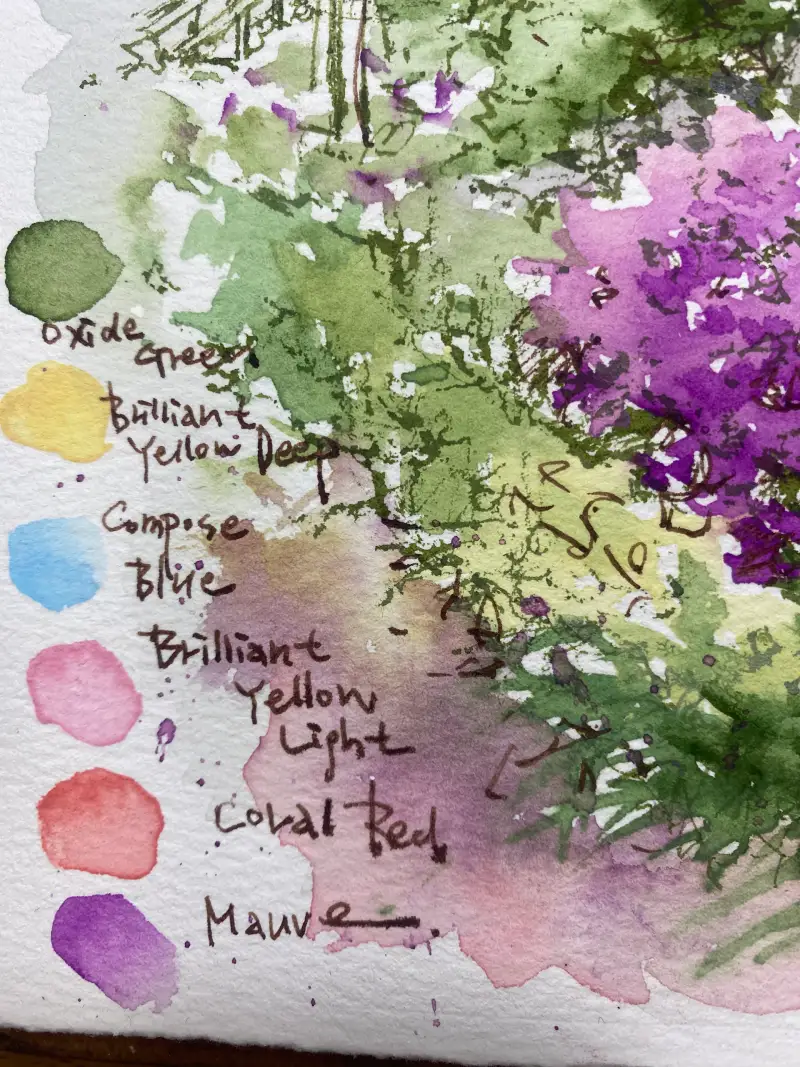 Oxide
Green
Brilliant
Yellow Deep
Compose
Blue
Brilliant
Yellow
Light
Coral Red
Mauve